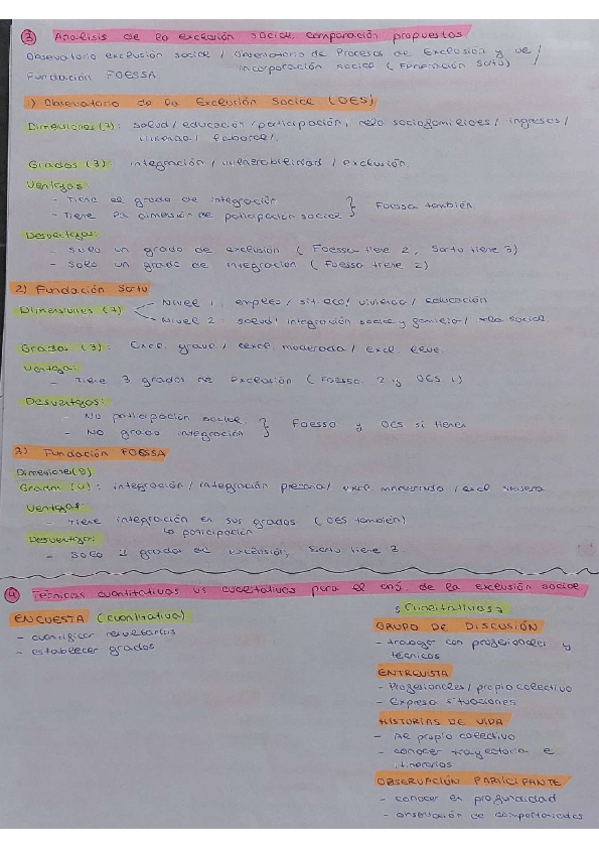 ③ Analisis de la exclusión social, comparación propuestas
Observatorio exclusión social / Observatorio de Procesos de Exclusión y de /
Fundación FOESSA incorporación social (Fundación Sartu)
1) Observatorio de la Exclusión Social (OES)
Dimensiones (7): salud / educación / participación, relo sociofamiliares / ingresos /
vivienda / laboral/.
Grados (3): integración / vulnerabilidad / exclusión.
Ventajas
- Tiene el grado de integración
- Tiene la dimensión de paticipación social } Foessa también
Desventajas:
- Solo un grado de exclusión ( Foessa tiene 2, Sartu tiene 3)
- Solo un grado de integración ( Foessa tiene 2)
2) Fundación Sartu
Dimensiones (7) Nivel 1: empleo / sit eco / vivienda / educación
Nivel 2: salud / integración social y familiar / social
Grados (3): Excl. grave / excl. moderada / Excl. leve.
Ventaja:
- Tiene 3 grados de exclusión ( Foessa 2 y OES 1)
Desventajas:
- No paticipación social
- No grado integración } Foessa y OES si tienen
3) Fundación FOESSA
Dimensiones (8)
Grados (4): integración / integración precaria / excl. moderada / excl severa
Ventajas:
- Tiene integración en sus grados (OES también)
la paticipación
Desventaja:
- Solo grados de exclusión, Sartu tiene 3.
④ Técnicas cuantitativas vs cualitativas para el aná. de la exclusión social
ENCUESTA (cuantitativa)
- cuantificar resultados
- establecer grados
GRUPO DE DISCUSIÓN
- trabajar con profesionales y
técnicos
ENTREVISTA
- Profesionales / propio colectivo
- Expresa situaciones
HISTORIAS DE VIDA
- Al propio colectivo
- conocer trayectoria e
itinerarios
OBSERVACIÓN PARTICIPANTE
- conocer en profundidad
- observación de comportamientos